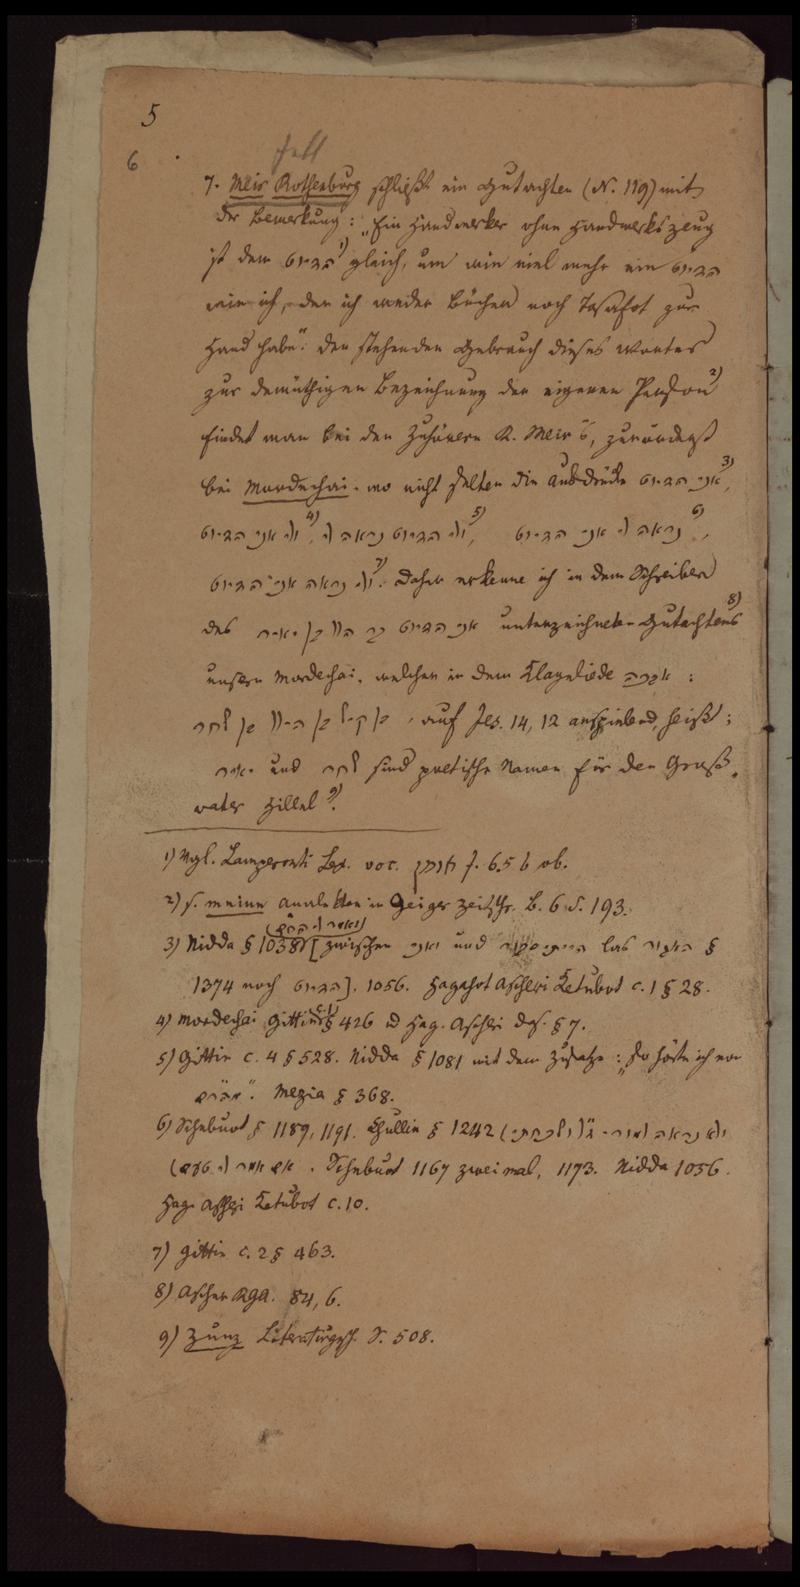 5
6
fehlt
7. Meir Rothenburg schließt ein Gutachten (N. 119) mit
der Bemerkung: „Ein Handwerker ohne Handwerkszeug
ist dem הדיוט ¹) gleich, um wie viel mehr ein הדיוט
wie ich, der ich weder Bücher noch Tosafot zur
Hand habe“. Den stehenden Gebrauch dieses Wortes
zur demüthigen Bezeichnung der eigenen Person ²)
findet man bei den Zuhörern R. Meir's, zuvörderst
bei Mordechai, wo nicht selten die Ausdrücke אני הדיוט ³),
ולי אני הדיוט ⁴), ולי הדיוט נראה לי ⁵), נראה לי אני הדיוט ⁶),
ולי נראה אני הדיוט ⁷). Daher erkenne ich in dem Schreiber
des אני הדיוט יאיר unterzeichneten Gutachtens ⁸)
unsern Mordechai, welcher in dem Klageliede :
הילל בן שחר, auf Jes. 14, 12 anspielend, heißt;
יאיר und שחר sind poetische Namen für den Groß-
vater Hillel ⁹).
1) Vgl. Lamperonti Lex. voc. אומן f. 65 b ob.
2) s. meine Analekten in Geiger Zeitschr. B. 6 S. 193.
3) Nidda § 1038 [zwischen ואני und §
1374 noch הדיוט]. 1056. Hagahot Ascheri Ketubot c. 1 § 28.
4) Mordechai Gittin c. 1 § 426 Hag. Ascheri das. § 7.
5) Gittin c. 4 § 528. Nidda § 1081 mit dem Zusatze: „So hörte ich von
מהר״ם“. Mezia § 368.
6) Schebuot § 1189, 1191. Chullin § 1242 (ולא נראה
. Schebuot 1167 zweimal, 1173. Nidda 1056.
Hag. Ascheri Ketubot c. 10.
7) Gittin c. 2 § 463.
8) Ascher RGA. 84, 6.
9) Zunz Literaturgesch. S. 508.